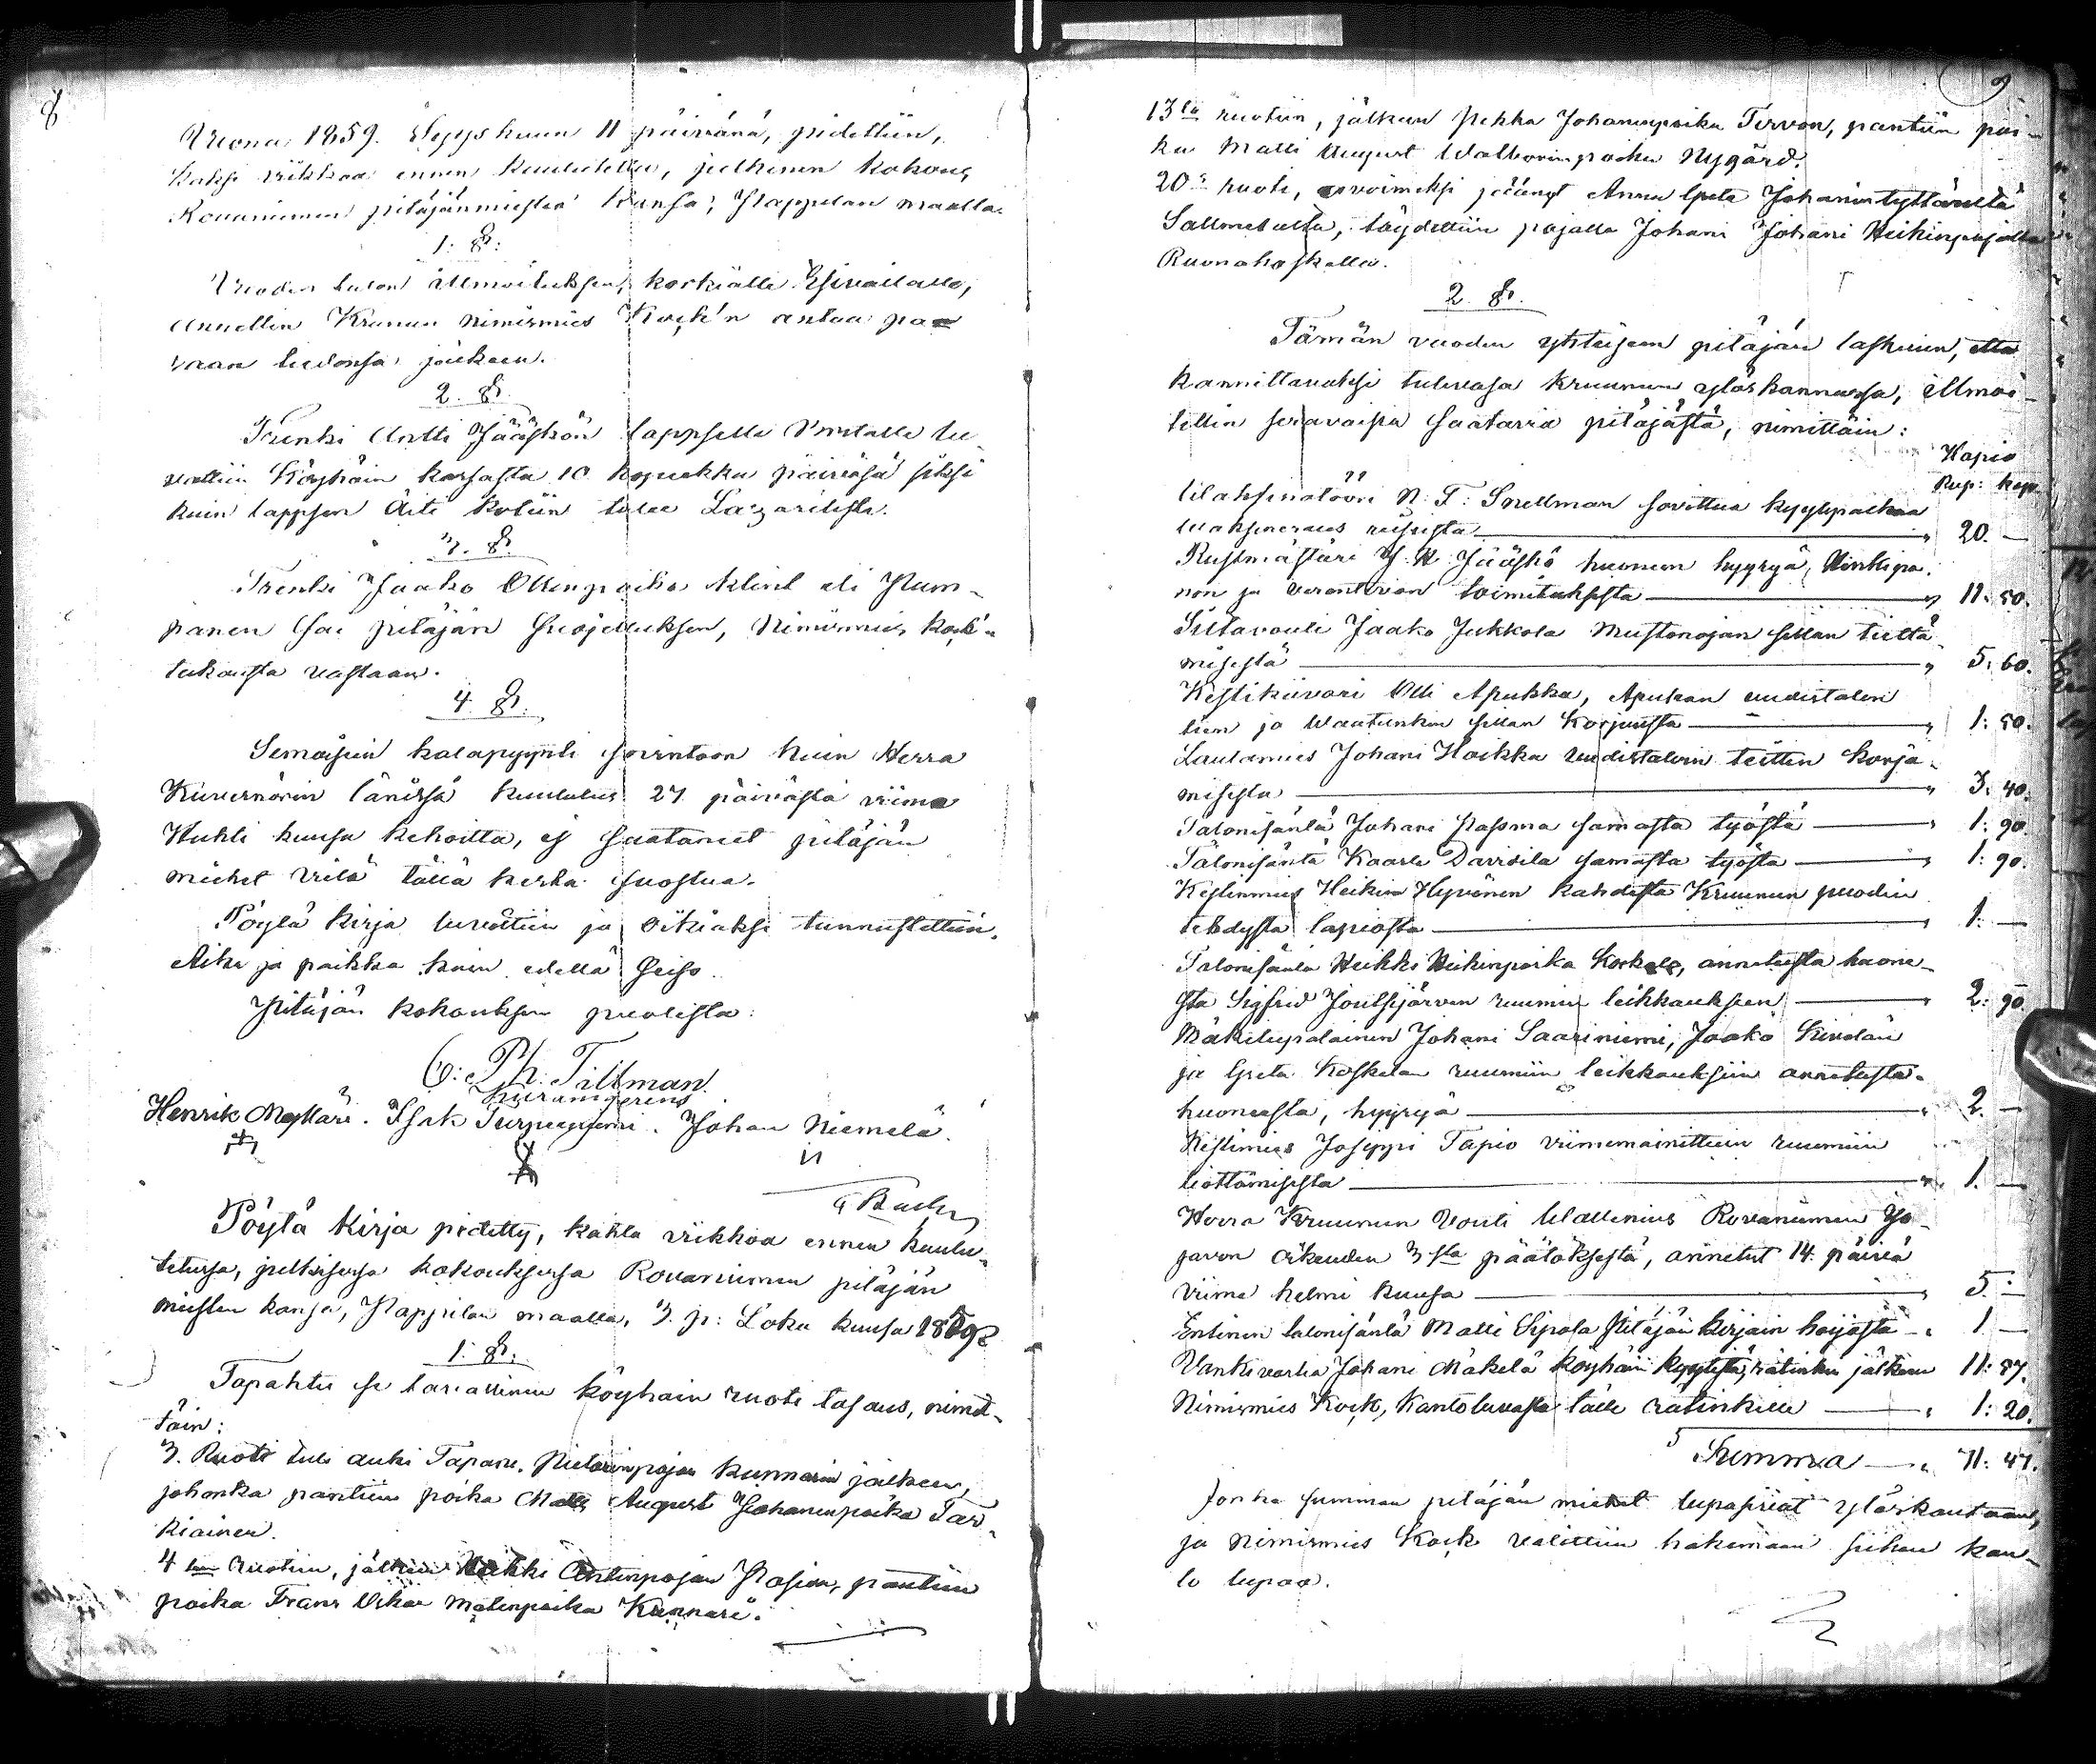 8
Vuona 1859. Syys kuun 11 päivänä, pidettiin,
kaksi viikkoa ennen kuulutettu, julkinen kokous
Rovaniemen pitäjänmiesten kansa, Pappilan maalla.
1: §:
Vuoden tulon ilmoituksen, korkiälle Esivallalle,
annettiin Krunun nimismies Kock'n antaa
vaan tiedonsa jälkeen.
2. §.
Trenki Antti Jääskön lappselle
Köyhäin kassasta 10 kopeekka päivässä siksi
kuin lappsen Äiti kotiin tulee Lazaretista.
3. §.
Trenki Jaako Ollinpoika Klint eli Pum-
panen sai pitäjän suojelluksen, Nimismies Kock'n
takausta vastaan.
4. §.
Semäisiin kalapyynti sovintoon kuin Herra
Kuvernörin länissä kuulutus 27 päivästä viime
Huhti kuusa kehoitta, ej saataneet pitäjän
miehet vielä tällä kerta suostua.
Pöytä kirja luvettiin ja oikiaksi tunnustettiin.
Aika ja paikka kuin edellä seiso.
Pitäjän kokouksen puolesta:
C: Ph: Tillman.
Henrik Mylläri. Isak Turpeenniemi. Johan Niemelä.
Pöytä kirja pidetty, kahta viikkoa ennen kuulu-
tetussa, julkisessa kokouksessa Rovaniemen pitäjän
miesten kansa, Pappilan maalla, 3. p: Loka kuusa 1859
1. §:
Tapahtu se tavallinen köyhain ruoti tasaus, nimit-
täin:
3. Ruoti tuli auki Tapani Kunnarin jälkeen,
johonka pantiin poika Matts August Johaninpoika Tar-
kiainen.
4 Ruotiin, jälkeen Heikki Antinpojan Pasian, pantiin
poika Frans Oskar Matinpoika Kunnari.
9
13ta ruotiin, jälkeen Pekka Johaninpoika Tervon, pantiin poi-
ka Matti August Walborinpoika Nygård.
20s ruoti, avoimeksi jäänyt Anna Greta Johanintyttäreltä
Sallmetulta, täydettiin pojalla Johani Johani Heikinpojalla
Ruonakoskella.
2. §.
Tämän vuoden yhteiseen pitäjän laskuun, että
kannittavaksi tulevasa kruunun ylöskannossa, ilmoi-
tettiin seuraavaisia saatavia pitäjästä, nimittäin:
Kapio
Rup: kop.
Waksinatööri N. F. Snellman sovittua kyytipalkaa
waksineraus reisusta " 20. —
Rustmästäri J. H. Jääskö huonen hyyryä, Kinkipa-
non ja toimituksesta " 11: 50.
Siltavouti Jaako Jukkola Mustanojan sillan tiettä-
misestä " 5: 60.
Kestikiivari Olli Apukka, Apukan uudistalon
tien ja Waatunkin sillan korjuusta " 1: 50.
Lautamies Johani Hoikka uudistaloin teitten korja-
misesta " 3: 40.
Talonisäntä Johani Pasma samasta työstä " 1: 90
Talonisäntä Kaarle Davisila samasta työsta " 1: 90.
Kestinmies Heikin Hyvönen kahdesta Kruunun puodin
tehdystä lapiosta " 1: —
Talonisäntä Heikki Heikinpoika Korkalo, annetusta huone-
sta Sigfrid Joutsijärven ruumiin leikkaukseen " 2: 90.
Mäkitupalainen Johani Saariniemi, Jaako Kivelän
ja Greta Koskelan ruumiin leikkauksiin annetusta
huoneesta, hyyryä " 2. —
Kestimies Joseppi Tapio viimemainittuin ruumiin
liottämisestä " 1. —
Herra Kruunun Vouti Wallenius Rovaniemen Yo-
javon oikeuden 3 sta päätöksestä, annetut 14. päivä
viime helmi kuusa " 5: —
Entinen talonisäntä Matti Sipola Pitäjän kirjain hoijosta " 1 —
Vankivartia Johani Mäkelä köyhäin kyytistä, rätinkin jälkeen 11: 87.
Nimismies Kock, Kantoluvasta tälle rätinkille " 1: 20.
Summa " 71: 47.
Jonka summan pitäjän miehet lupasivat ylöskantaan,
ja Nimismies Kock valittiin hakemaan siihen kan-
to lupaa.